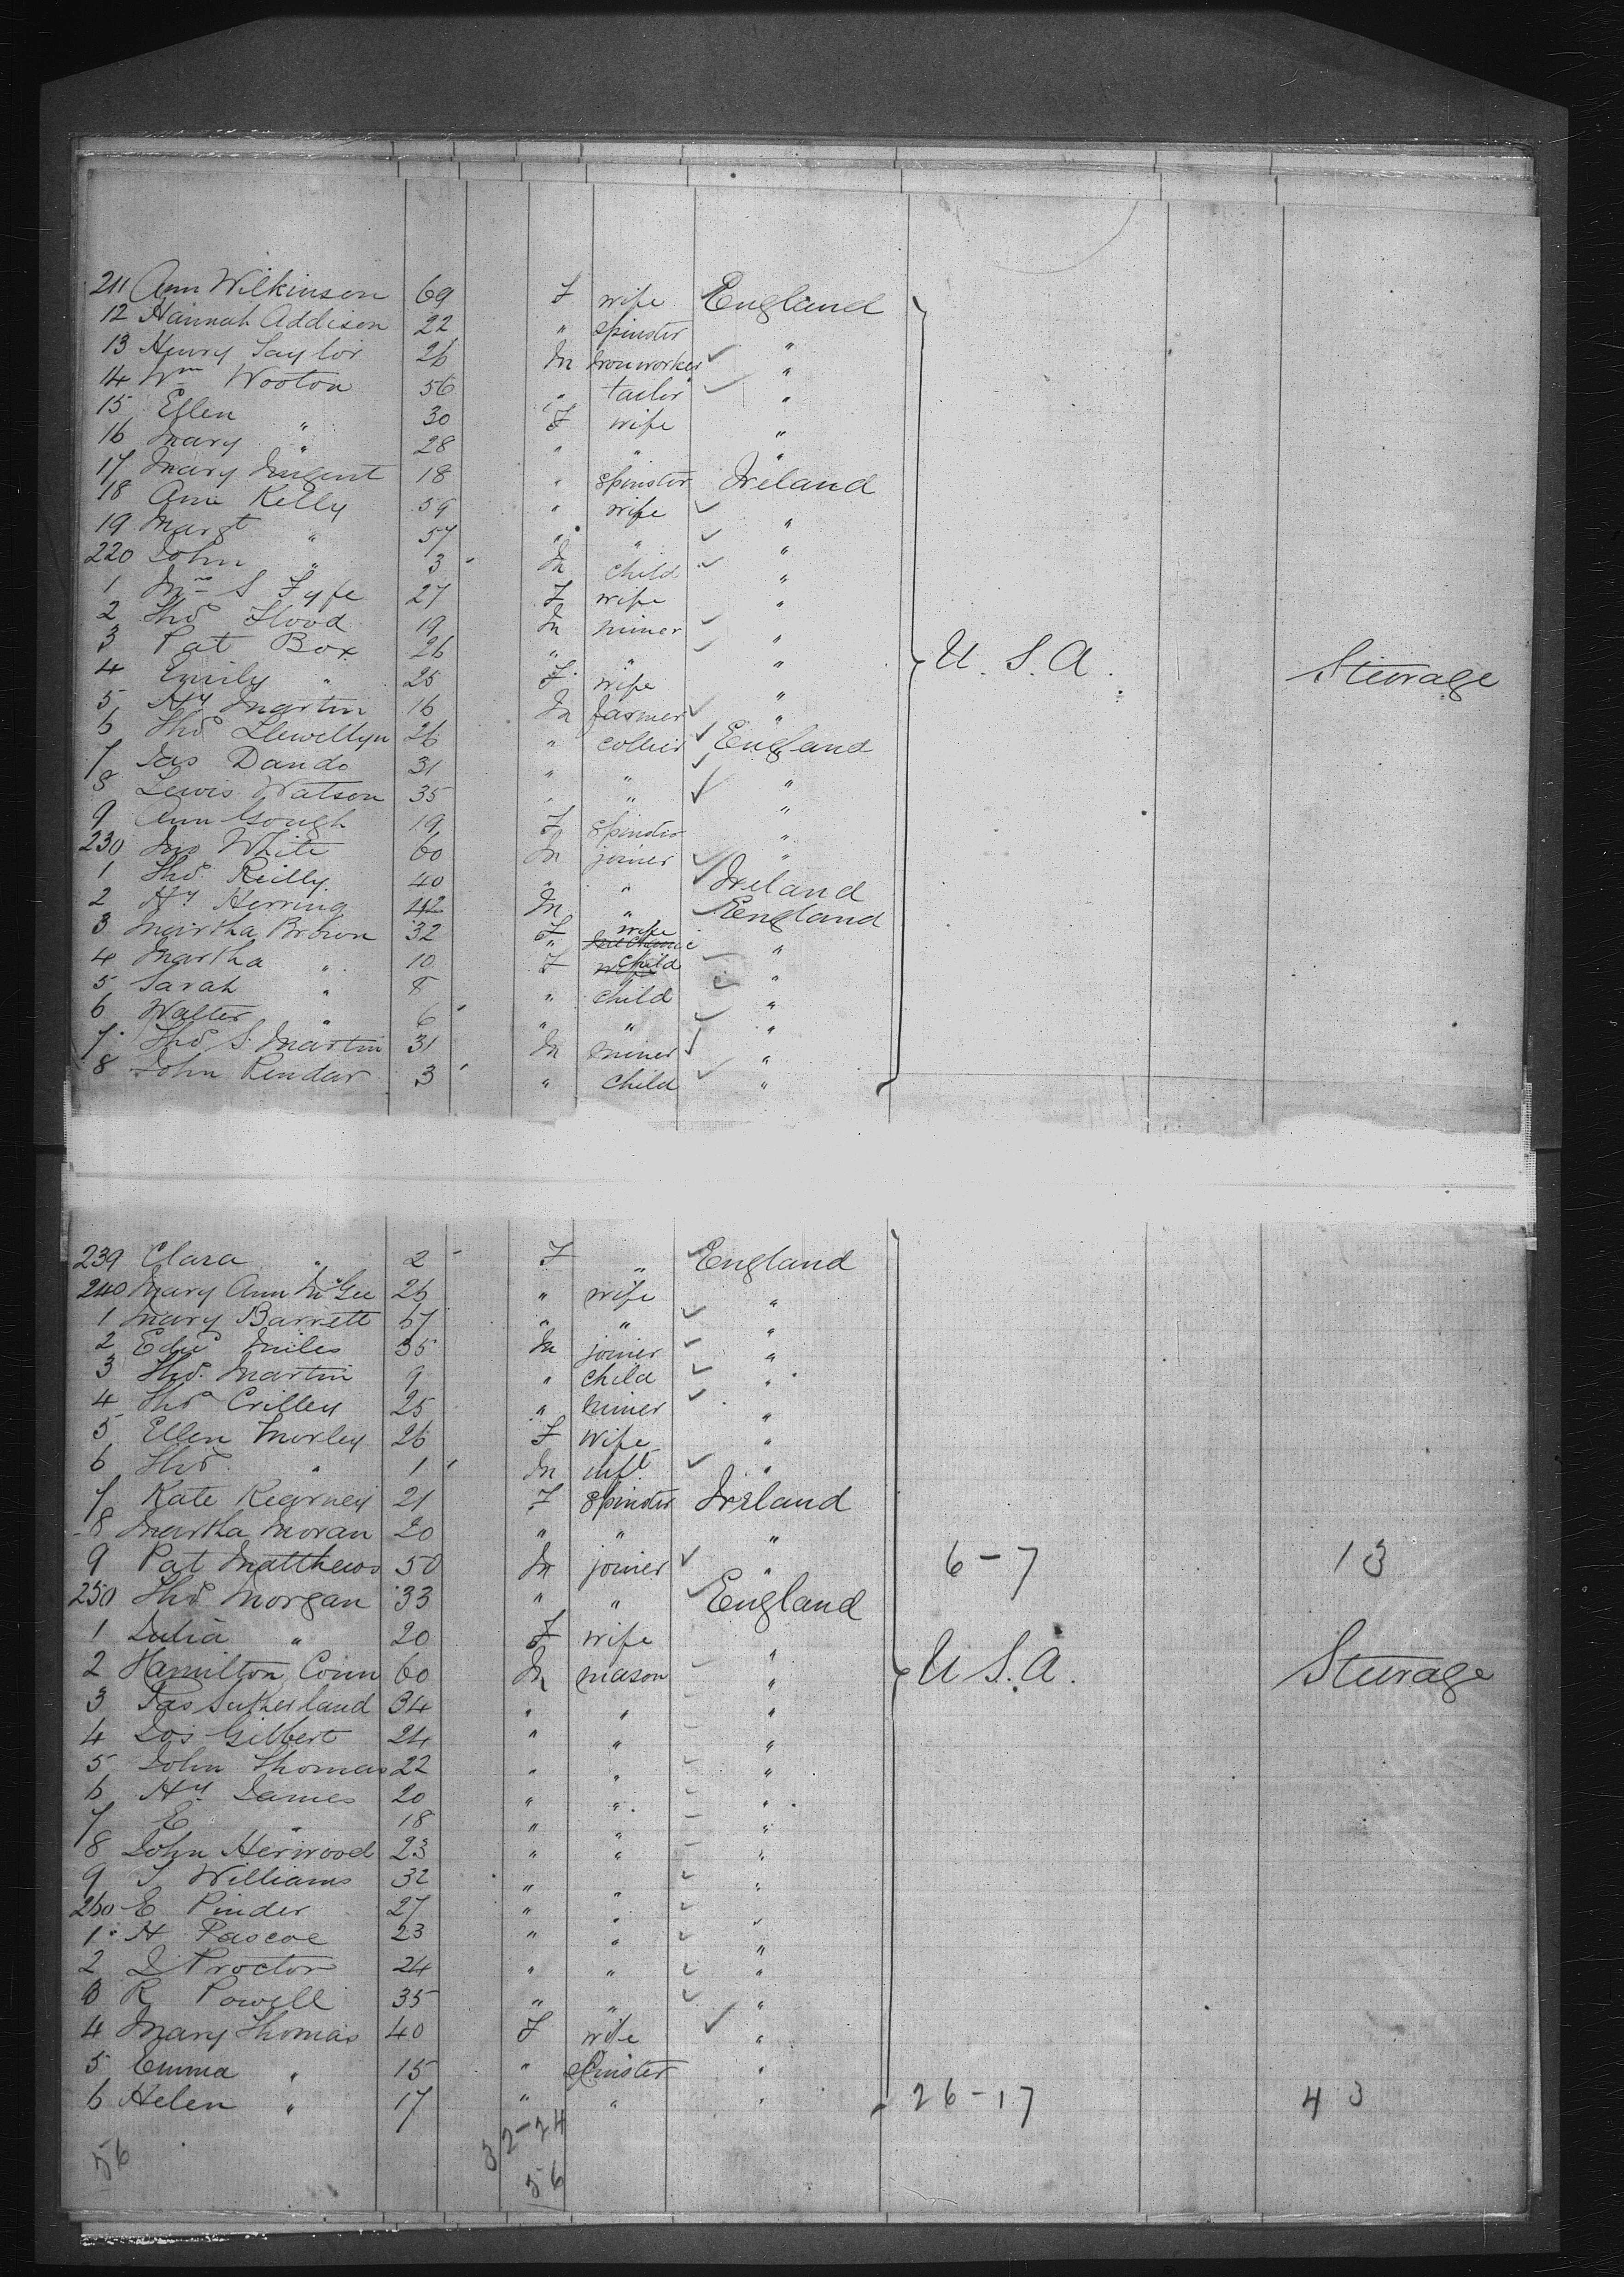 211 Ann Wilkinson 69 F wife England
12 Hannah Addison 22 " spinster "
13 Henry Taylor 26 M Ironworker "
14 Wm Wooton 56 " tailor "
15 Ellen " 30 F wife "
16 Mary " 28 " " "
17 Mary 18 " spinster Ireland
18 Ann Kelly 59 " wife "
19 Margt " 57 " " "
220 John " 3 M child "
1 Mrs S Fyfe 27 F wife "
2 Thos Flood 19 M miner "
3 Pat Box 26 " " " U. S. A. Steerage
4 Emily " 25 F wife "
5 Hy Martin 16 M farmer "
6 Thos Llewellyn 26 " collier England
7 Jas Dando 31 " " "
8 Lewis Watson 35 " " "
9 Ann Gough 19 F spinster "
230 Jno White 60 M joiner "
1 Thos Reilly 40 " " Ireland
2 Hy Herring 42 M " England
3 Martha Brown 32 F wife "
4 Martha " 10 F child "
5 Sarah " 8 " child "
6 Walter " 6 " " "
7 Thos S. Martin 31 M miner "
8 John Pendar 3 " child "
239 Clara " 2 F " England
240 Mary Ann McGee 26 " wife "
1 Mary Barrett 67 " " "
2 Edwd Miles 35 M joiner "
3 Thos Martin 9 " child "
4 Thos Crilley 25 " miner "
5 Ellen Morley 26 F Wife "
6 Thos " 1 M inft "
7 Kate Kearney 21 F spinster Ireland
8 Martha Moran 20 " " "
9 Pat Matthews 50 M joiner " 6-7 13
250 Thos Morgan 33 " " England
1 Julia " 20 F wife "
2 Hamilton Conn 60 M mason " U S. A. Steerage
3 Jas Sutherland 34 " " "
4 Jos Gilbert 24 " " "
5 John Thomas 22 " " "
6 Hy James 20 " " "
7 E " 18 " " "
8 John Herwood 23 " " "
9 T Williams 32 " " "
260 E Pinder 27 " " "
1 H Pascoe 23 " " "
2 J Proctor 24 " " "
3 R Powell 35 " " "
4 Mary Thomas 40 F wife "
5 Emma " 15 " Spinster "
6 Helen " 17 " " " 26-17 43
56 32-24
56